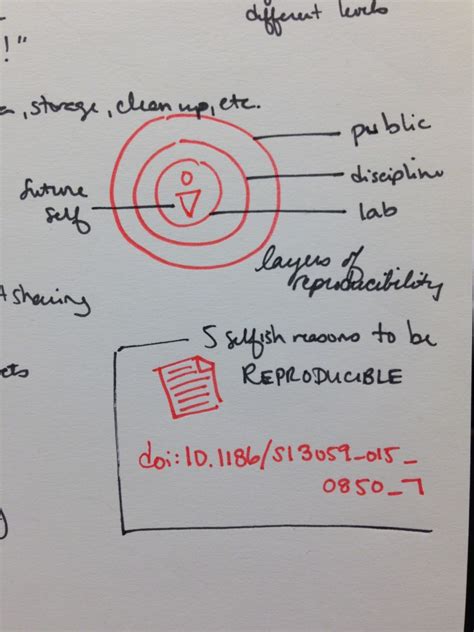 different levels
!"
, storage, clean up, etc.
public
discipline
lab
future
self
layers of
reproducibility
sharing
5 selfish reasons to be
REPRODUCIBLE
doi:10.1186/S13059_015_
0850_7